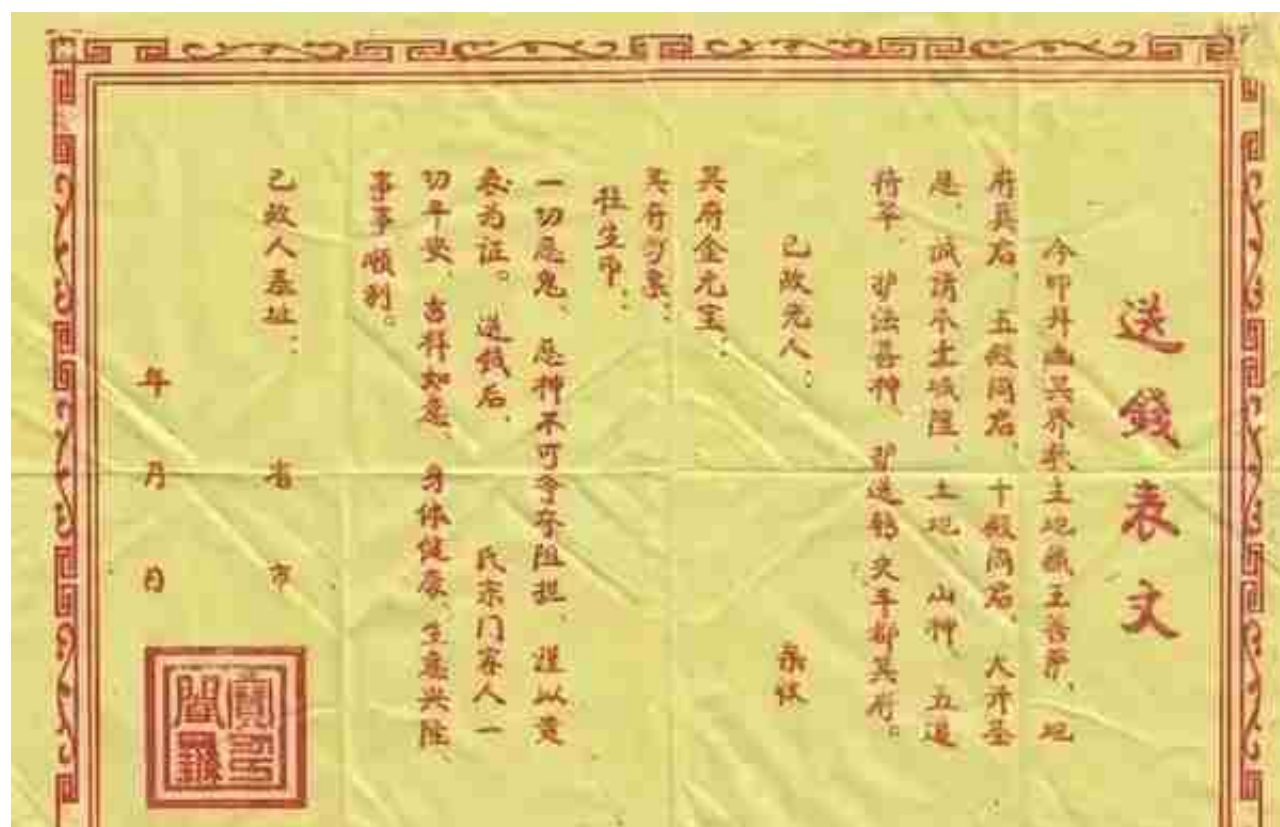 送錢表文
今叩拜幽冥界教主地藏王菩萨、地
府冥君、五殿阎君、十殿阎君、大开圣
恩、诚请水土城隍、土地、山神、五道
将军、护法善神、护送鹤夹车都冥府。
已故先人： 承休
冥府金元宝：
冥府
往生币：
一切恶鬼、恶神不可争夺阻拦、谨以黄
表为证。送钱后、 氏宗门家人一
切平安、吉祥如意、身体健康、生意兴隆、
事事顺利。
已故人墓址： 省 市
年 月 日